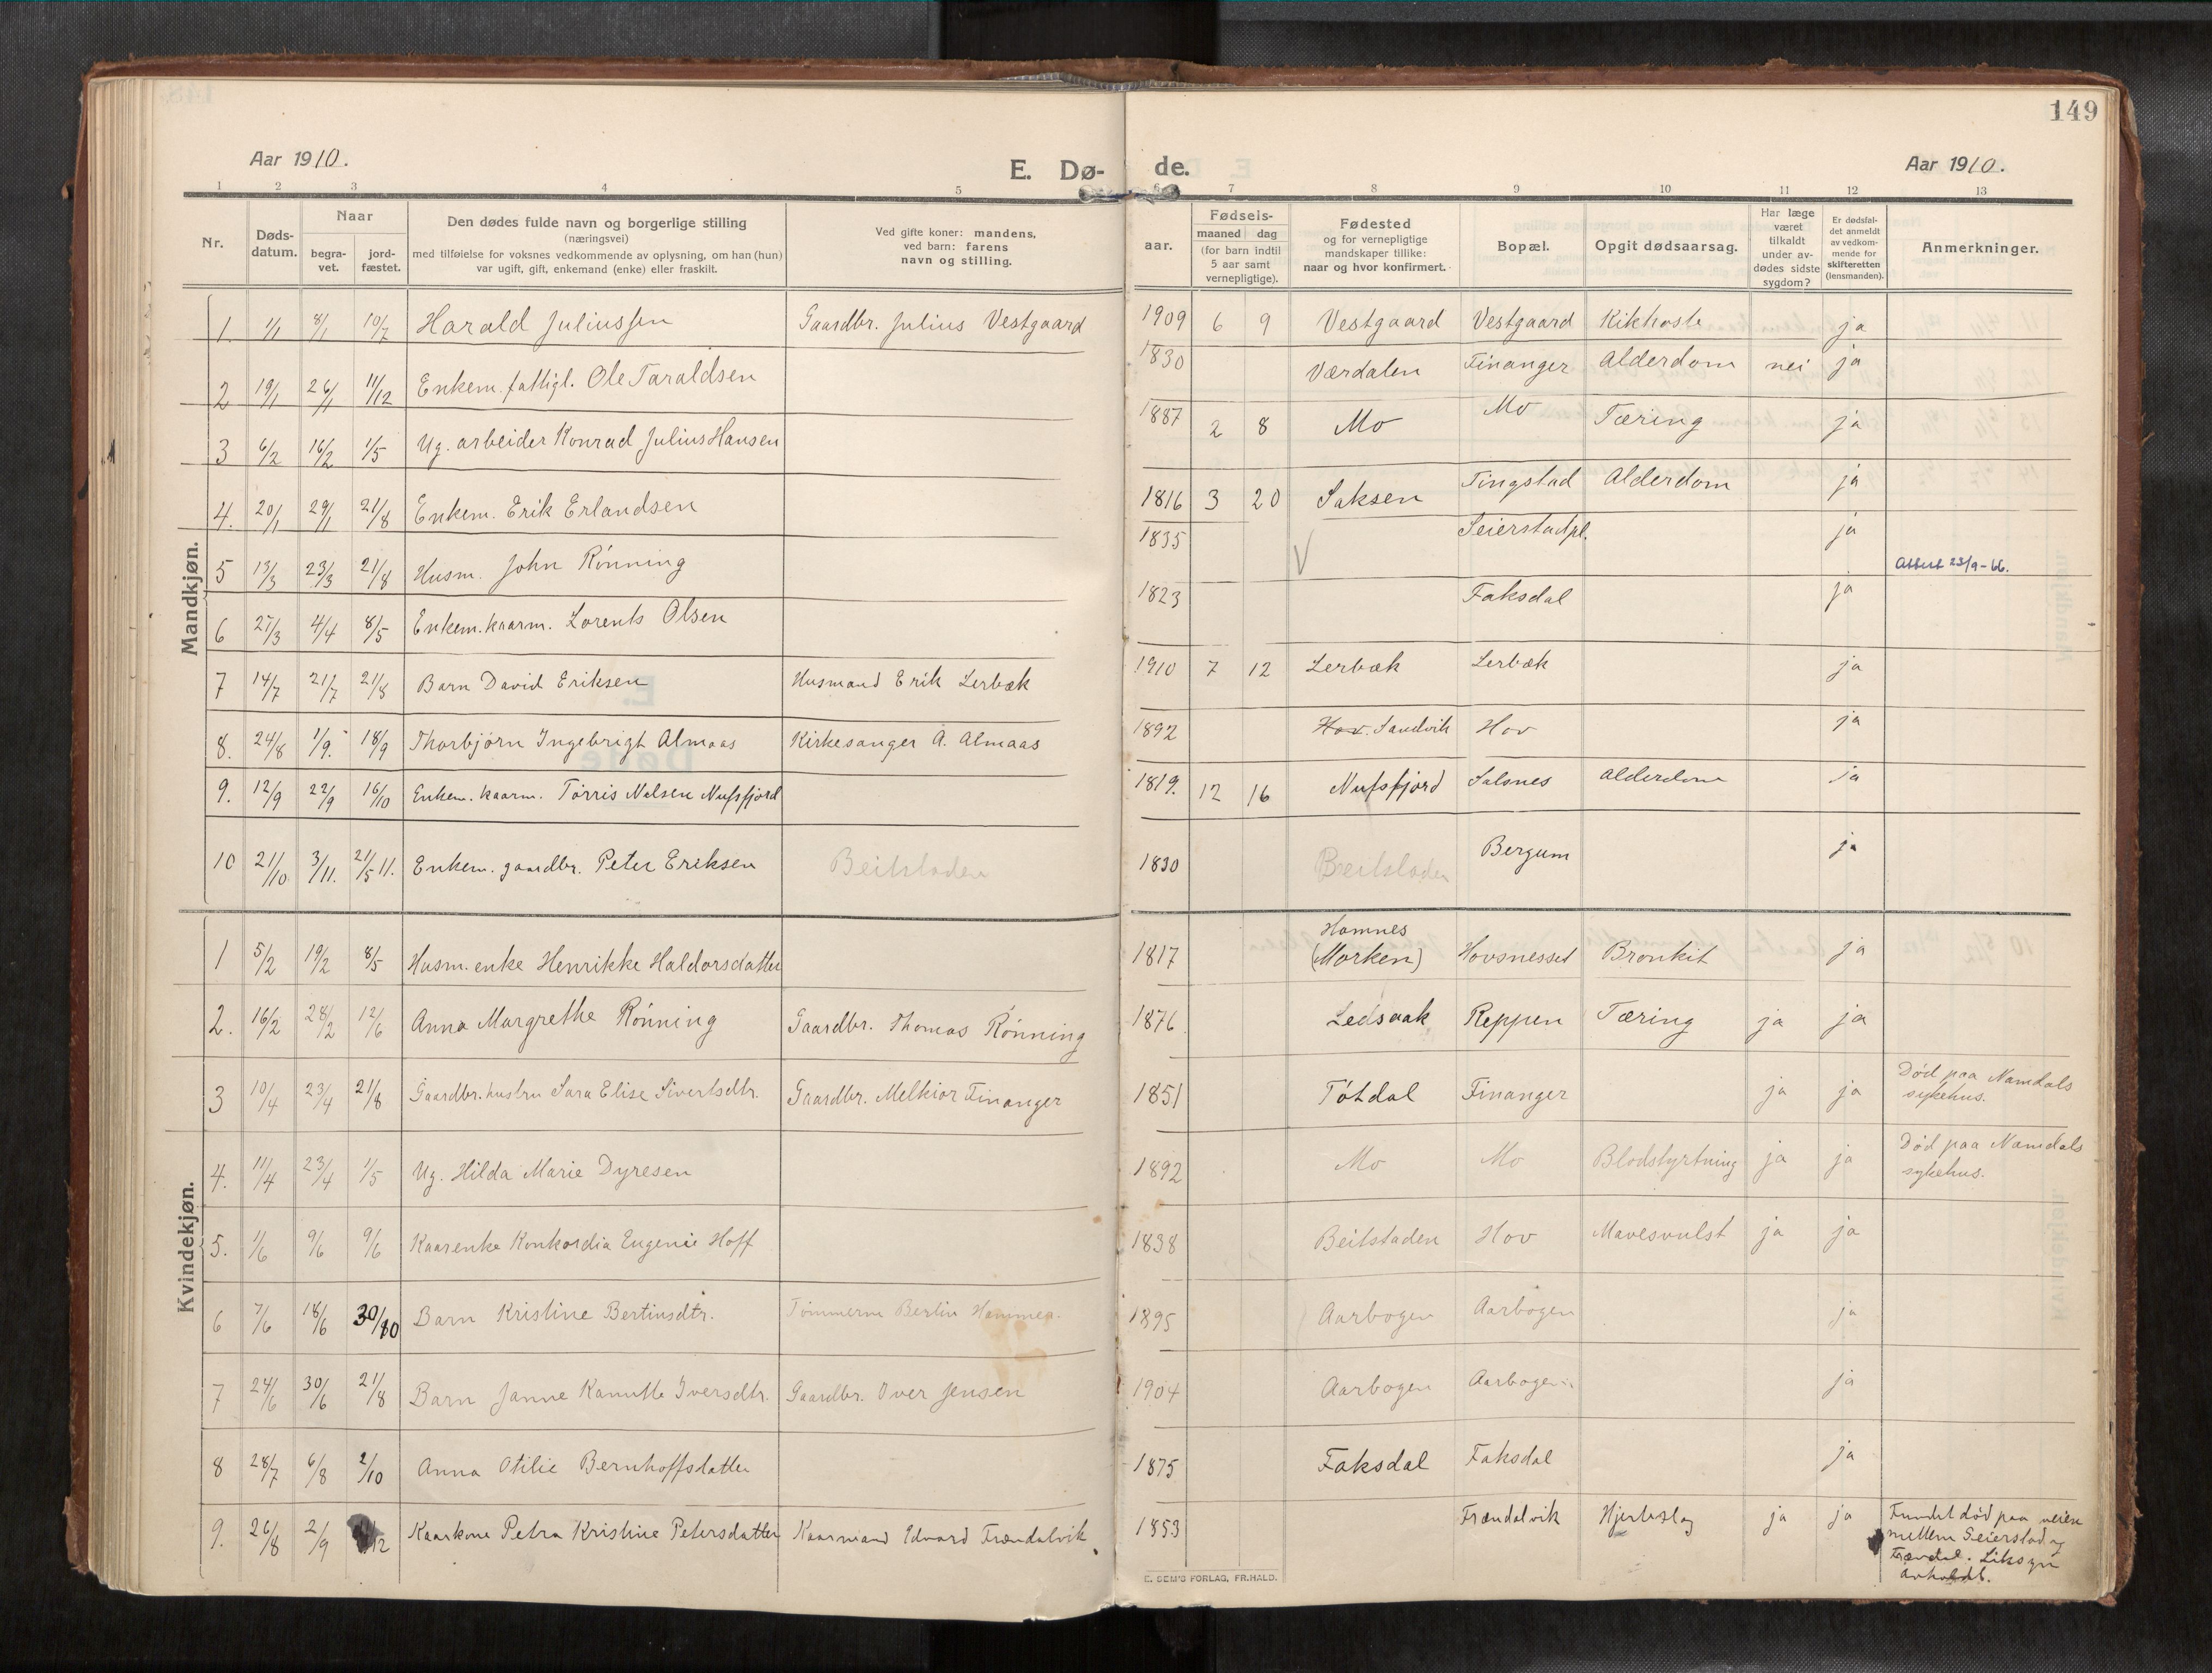 149
Aar 1910.
E. Dø- de.
Aar 1910.
1 2 3 4 5 6 7 8 9 10 11 12 13
Nr. Døds-datum. Naar begra-vet. jord-fæstet. Den dødes fulde navn og borgerlige stilling (næringsvei) med tilføielse for voksnes vedkommende av oplysning, om han (hun) var ugift, gift, enkemand (enke) eller fraskilt. Ved gifte koner: mandens, ved barn: farens navn og stilling. aar. Fødsels- maaned dag (for barn indtil 5 aar samt vernepligtige). Fødested og for vernepligtige mandskaper tillike: naar og hvor konfirmert. Bopæl. Opgit dødsaarsag. Har læge været tilkaldt under av-dødes sidste sygdom? Er dødsfal-det anmeldt av vedkom-mende for skifteretten (lensmanden). Anmerkninger.
Mandkjøn.
1. 1/1 8/1 10/7 Harald Juliussen Gaardbr. Julius Vestgaard 1909 6 9 Vestgaard Vestgaard Kikhoste ja
2 19/1 26/1 11/12 Enkem. fattigl. Ole Taraldsen 1830 Værdalen Finanger Alderdom nei ja
3 6/2 16/2 1/5 Ug. arbeider Konrad Julius Hansen 1887 2 8 Mo Mo Tæring ja
4. 20/1 29/1 21/8 Enkem. Erik Erlandsen 1816 3 20 Saksen Tingstad Alderdom ja
5 13/3 23/3 21/8 Husm. John Rønning 1835 V Seierstadpl. ja Attest 23/9-66.
6 27/3 4/4 8/5 Enkem. kaarm. Lorents Olsen 1823 Faksdal ja
7 14/7 21/7 21/8 Barn David Eriksen Husmand Erik Lerbæk 1910 7 12 Lerbæk Lerbæk ja
8. 24/8 1/9. 18/9 Thorbjørn Ingebrigt Almaas Kirkesanger A. Almaas 1892 Hov. Sandvik Hov ja
9. 12/9 22/9 16/10 Enkem. kaarm. Tørris Nelsen Nufsfjord 1819. 12 16 Nufsfjord Salsnes Alderdom ja
10 21/10 3/11. 21/5 11. Enkem. gaardbr. Peter Eriksen Beitstaden 1830 Beitstaden Bergum ja
Kvindekjøn.
1 5/2 19/2 8/5 Husm. enke Henrikke Haldorsdatter 1817 Homnes (Morken) Hovsnesset Bronkit ja
2. 16/2 28/2 12/6 Anna Margrethe Rønning Gaardbr. Thomas Rønning 1876 Ledsaak Reppen Tæring ja ja
3 10/4 23/4 21/8 Gaardbr. hustru Sara Elise Sivertsdtr. Gaardbr. Melkior Finanger 1851 Tøtdal Finanger ja ja Død paa Namdals sykehus.
4. 11/4 23/4 1/5 Ug. Hilda Marie Dyresen 1892 Mo Mo Blodstyrtning ja ja Død paa Namdals sykehus.
5. 1/6 9/6 9/6 Kaarenke Konkordia Eugenie Hoff 1838 Beitstaden Hov Mavesvulst ja ja
6 7/6 18/6 30/10 Barn Kristine Bertinsdtr. Tømmerm Bertin 1895 Aarbogen Aarbogen ja
7 24/6 30/6 21/8 Barn Janne Kanutte Iversdtr. Gaardbr. Iver Jensen 1904 Aarbogen Aarbogen ja
8 28/7 6/8 2/10 Anna Otilie Bernhoffsdatter 1875 Faksdal Faksdal ja
9. 26/8 2/9 Kaarkone Petra Kristine Petersdatter Kaarmand Edvard Frændalvik 1853 Frændalvik Hjerteslag ja ja Fundet død paa veien mellem Seierstad og Frændal. Liksyn avholdt.
E. SEM'S FORLAG, FR.HALD.